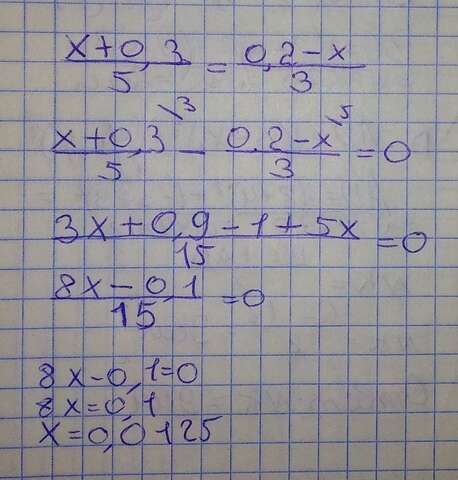 x+0,3/5 = 0,2-x/3
x+0,3\3/5 - 0,2-x\5/3 = 0
3x+0,9-1+5x/15 = 0
8x-0,1/15 = 0
8x-0,1=0
8x=0,1
x=0,0125